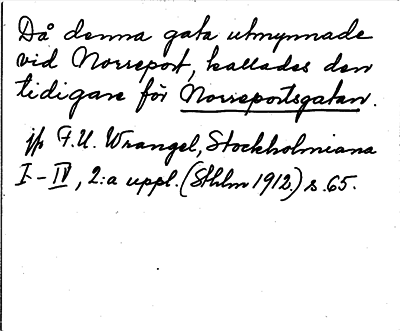 Då denna gata utmynnade
vid Norreport, kallades den
tidigare för Norreportsgatan.
jfr F.U. Wrangel, Stockholmiana
I-IV, 2:a uppl. (Sthlm 1912.) s. 65.